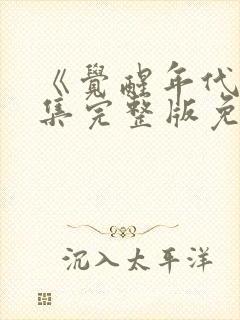 《覺醒年代
集完整版免
沉入太平洋